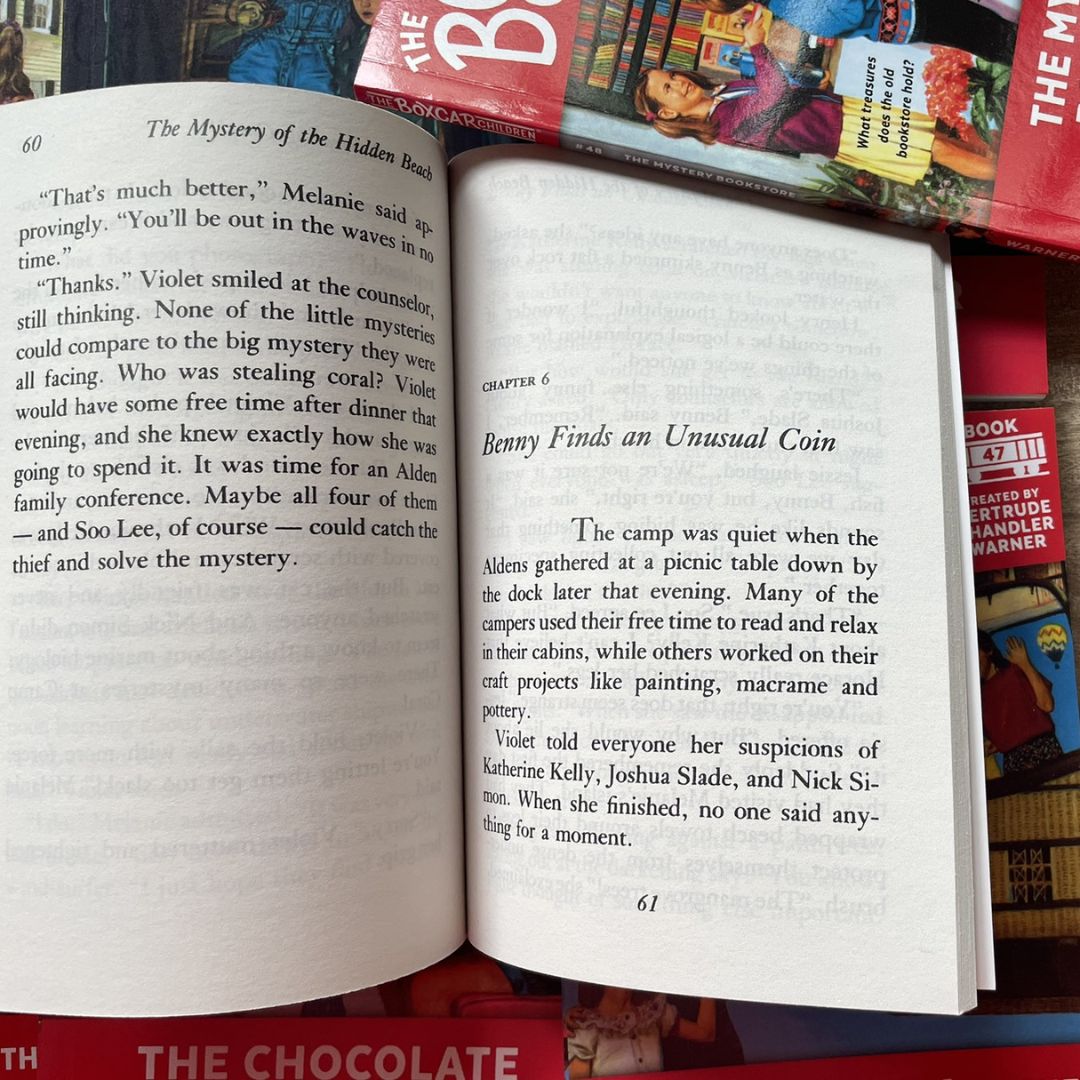 THE
THE BOXCAR CHILDREN
What treasures
does the old
bookstore hold?
#48 THE MYSTERY BOOKSTORE
THE MY
WARNER
60 The Mystery of the Hidden Beach
“That’s much better,” Melanie said ap-
provingly. “You’ll be out in the waves in no
time.”
“Thanks.” Violet smiled at the counselor,
still thinking. None of the little mysteries
could compare to the big mystery they were
all facing. Who was stealing coral? Violet
would have some free time after dinner that
evening, and she knew exactly how she was
going to spend it. It was time for an Alden
family conference. Maybe all four of them
— and Soo Lee, of course — could catch the
thief and solve the mystery.
CHAPTER 6
Benny Finds an Unusual Coin
The camp was quiet when the
Aldens gathered at a picnic table down by
the dock later that evening. Many of the
campers used their free time to read and relax
in their cabins, while others worked on their
craft projects like painting, macrame and
pottery.
Violet told everyone her suspicions of
Katherine Kelly, Joshua Slade, and Nick Si-
mon. When she finished, no one said any-
thing for a moment.
61
BOOK
47
REATED BY
ERTRUDE
HANDLER
WARNER
TH
THE CHOCOLATE